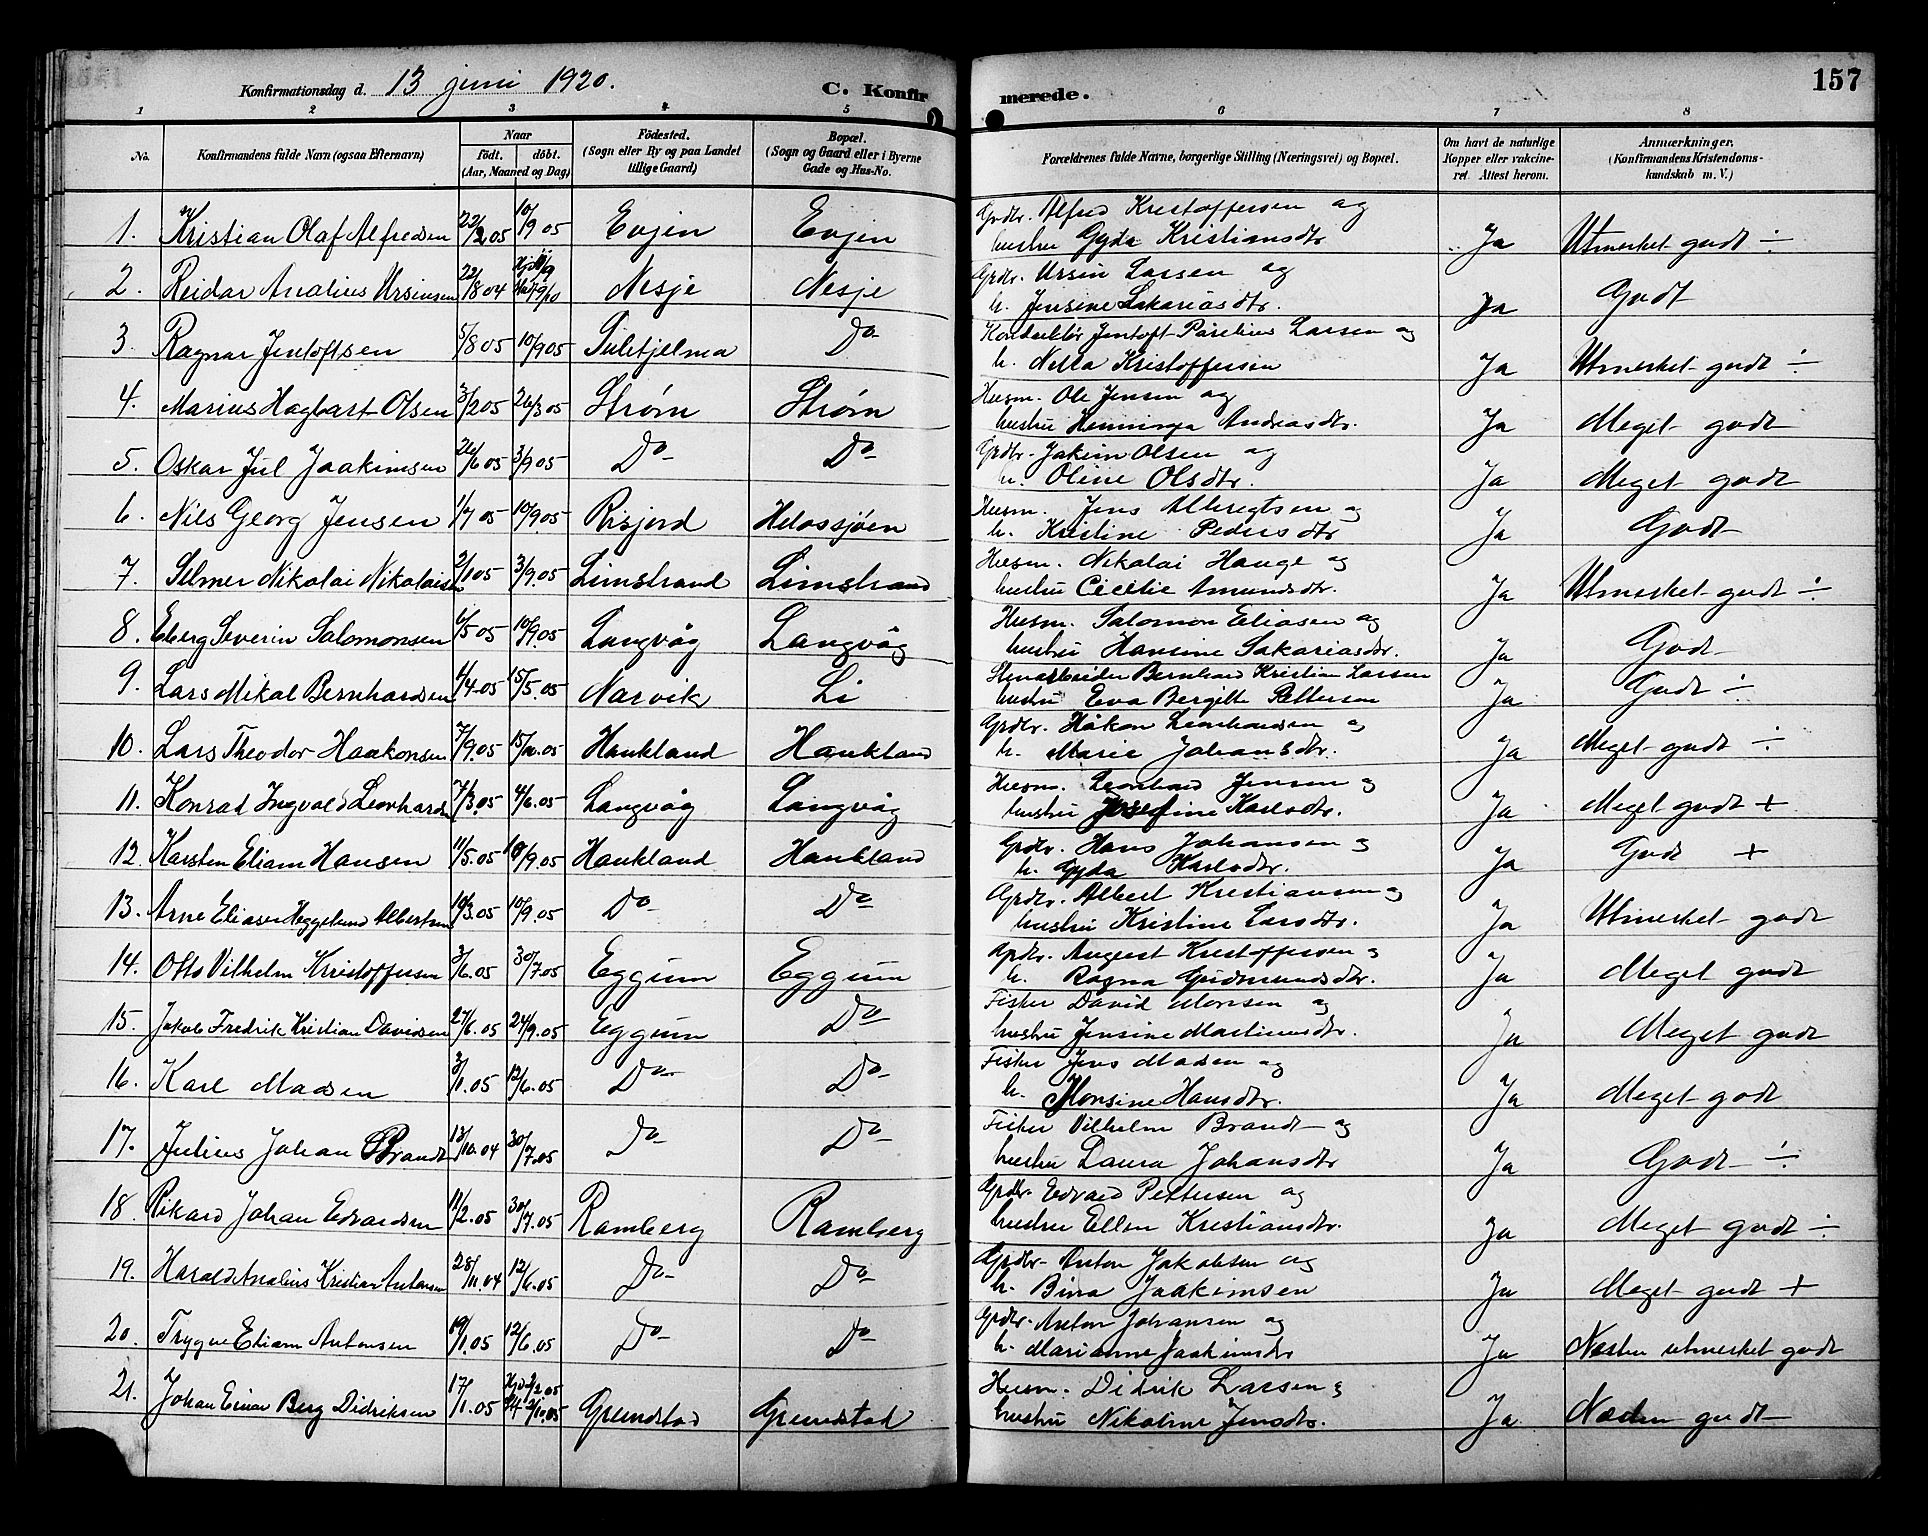 Konfirmationsdag d. 13 juni 1920. C. Konfirmerede. 157
1 2 3 4 5 6 7 8
No. Konfirmandens fulde Navn (ogsaa Efternavn) Naar født. døbt. (Aar, Maaned og Dag) Födested. (Sogn eller By og paa Landet tillige Gaard) Bopæl. (Sogn og Gaard eller i Byerne Gade og Hus-No. Forældrenes fulde Navne, borgerlige Stilling (Næringsvei) og Bopæl. Om havt de naturlige Kopper eller vakcineret. Attest herom. Anmærkninger. (Konfirmandens Kristendomskundskab m. V.)
1. Kristian Olaf Alfredsen 22/2 05 10/9 05 Evjen Evjen Grdbr. Alfred Kristoffersen og hustru Gyda Kristiansdtr Ja Utmerket godt ÷
2. Reidar Analius Ursinsen 22/8 04 Nesje Nesje Grdbr. Ursin Larsen og h. Jensine Sakariasdtr. Ja Godt
3. Ragnar Jentoftsen 5/8 05 10/9 05 Sulitjelma Do Konduktør Jentoft Parelius Larsen og h. Nella Kristoffersen Ja Utmerket godt ÷
4. Marius Hagbart Olsen 3/2 05 26/3 05 Strøm Strøm Husm. Ole Jensen og hustru Henninga Andreasdtr. Ja Meget godt
5. Oskar Jul Joakimsen 26/6 05 3/9 05 Do Do Grdbr. Jakim Olsen og h. Oline Olsdtr. Ja Meget godt
6. Nils Georg Jensen 1/7 05 10/9 05 Risjord Helossjøen Husm. Jens Albregtsen og h. Kristine Pedersdtr Ja Godt
7. Selmer Nikolai Nikolaisen 2/1 05 3/9.05 Limstrand Limstrand Husm. Nikolai Hauge og hustru Cecilie Amundsdtr. Ja Utmerket godt ÷
8. Eberg Severin Salomonsen 6/5 05 10/9.05 Langvåg Langvåg Husm. Salomon Eliasen og hustru Hansine Sakariasdtr. Ja Godt
9. Lars Mikal Bernhardsen 11/4.05 15/5.05 Narvik Li Stenarbeider Bernhard Kristian Larsen hustru Eva Bergitte Pettersen Ja Godt ÷
10. Lars Theodor Haakonsen 7/9.05 15/10.05 Haukland Haukland Grdbr. Håkon Leonhardsen og h. Marie Johansdtr. Ja Meget godt ÷
11. Konrad Ingvald Leonhardsen 7/3.05 4/6.05 Langvåg Langvåg Husm. Leonhard Jensen og hustru Josefine Karlsdtr. Ja Meget godt +
12. Karsten Eliam Hansen 11/5.05 10/9.05 Haukland Haukland Grdbr. Hans Johansen og h. Gyda Karlsdtr. Ja Godt +
13. Arne Eliaser Heggelund Albertsen 10/3.05 10/9.05 Do Do Grdbr. Albert Kristiansen og hustru Kristine Larsdtr. Ja Utmerket godt
14. Otto Vilhelm Kristoffersen 3/6.05 30/7.05 Eggum Eggum Grdbr. August Kristoffersen og h. Ragna Gudmundsdtr. Ja Meget godt
15. Jakob Fredrik Kristian Davidsen 27/6.05 24/9.05 Eggum Do Fisker David Monsen og hustru Jensine Martinusdtr. Ja Meget godt
16. Karl Madsen 3/1.05 12/6.05 Do Do Fisker Jens Madsen og h. Monsine Hansdtr. Ja Meget godt
17. Julius Johan Brandt 13/10.04 30/7.05 Do Do Fisker Vilhelm Brandt og hustru Laura Johansdtr Ja Godt ÷
18. Rikard Johan Edvardsen 11/2.05 30/7.05 Ramberg Ramberg Grdbr. Edvard Pettersen og hustru Ellen Kristiansdtr. Ja Meget godt ÷
19. Harald Analius Kristian Antonsen 28/11.04 12/6.05 Do Do Grdbr. Anton Jakobsen og h. Bina Joakimsen Ja Meget godt +
20. Trygve Eliam Antonsen 19/1.05 12/6.05 Do Do Grdbr. Anton Johansen og h. Marianne Joakimsdtr Ja Næsten utmerket godt
21. Johan Einar Berg Didriksen 17/1.05 Grundstad Grundstad Husm. Didrik Larsen og hustru Nikoline Jensdtr. Ja Næsten godt